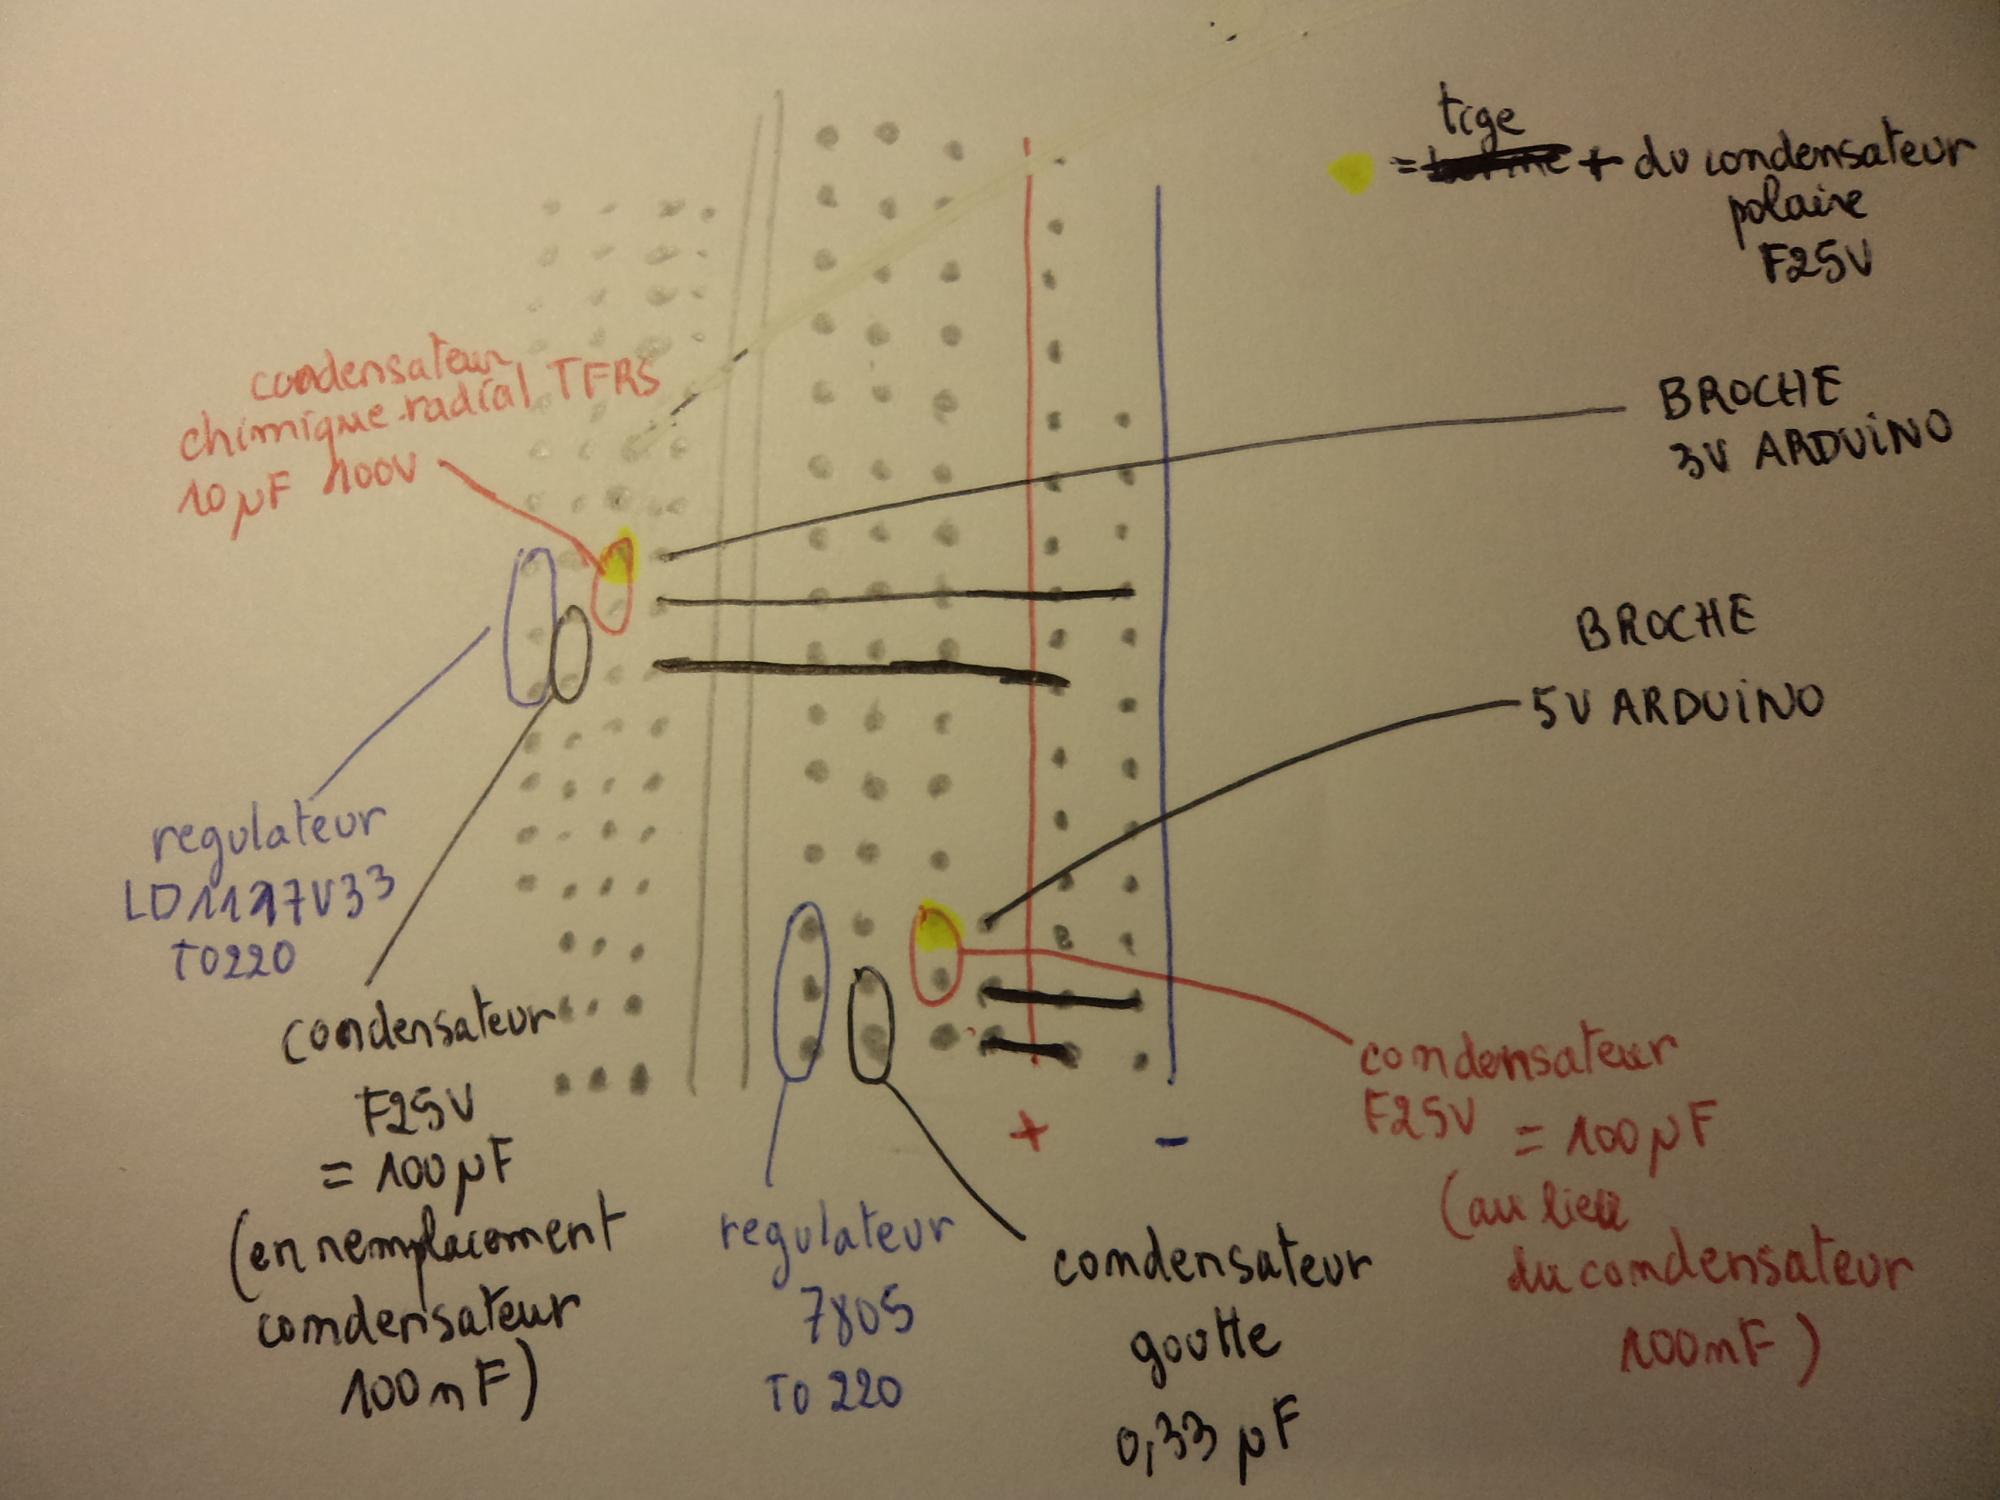 tige
= + du condensateur
polaire
F25V
condensateur
chimique radial TFRS
10 µF 100V
BROCHE
3V ARDUINO
BROCHE
5V ARDUINO
regulateur
LD1117V33
TO220
condensateur
F25V
= 100 µF
(en remplacement
condensateur
100 nF)
+ -
regulateur
7805
TO 220
condensateur
goutte
0,33 µF
condensateur
F25V = 100 µF
(au lieu
du condensateur
100nF)